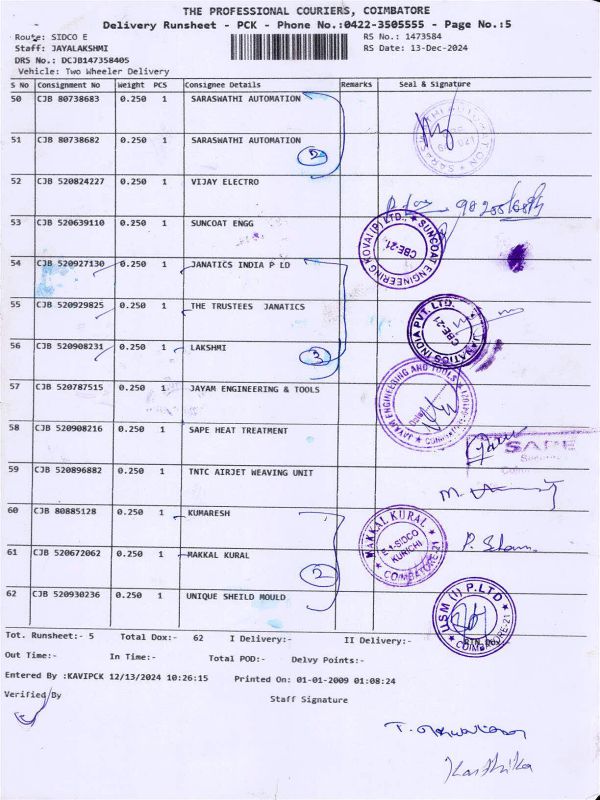 THE PROFESSIONAL COURIERS, COIMBATORE
Delivery Runsheet - PCK - Phone No.:0422-3505555 - Page No.:5
Route: SIDCO E
RS No.: 1473584
Staff: JAYALAKSHMI
RS Date: 13-Dec-2024
DRS No.: DCJB147358405
Vehicle: Two Wheeler Delivery
S No Consignment No Weight PCS Consignee Details Remarks Seal & Signature
50 CJB 80738683 0.250 1 SARASWATHI AUTOMATION
51 CJB 80738682 0.250 1 SARASWATHI AUTOMATION
52 CJB 520824227 0.250 1 VIJAY ELECTRO
53 CJB 520639110 0.250 1 SUNCOAT ENGG
SUNCOAT ENGINEERING KOVAI (P) LTD.,
CBE-21.
54 CJB 520927130 0.250 1 JANATICS INDIA P LD
55 CJB 520929825 0.250 1 THE TRUSTEES JANATICS
JANATICS INDIA PVT. LTD.
CBE-21
56 CJB 520908231 0.250 1 LAKSHMI
3
57 CJB 520787515 0.250 1 JAYAM ENGINEERING & TOOLS
JAYAM ENGINEERING AND TOOLS
58 CJB 520908216 0.250 1 SAPE HEAT TREATMENT
SAPE
59 CJB 520896882 0.250 1 TNTC AIRJET WEAVING UNIT
60 CJB 80885128 0.250 1 KUMARESH
MAKKAL KURAL
E-1-SIDCO
KURICHI
COIMBATORE-21
61 CJB 520672062 0.250 1 MAKKAL KURAL
2
62 CJB 520930236 0.250 1 UNIQUE SHEILD MOULD
Tot. Runsheet:- 5 Total Dox:- 62 I Delivery:- II Delivery:-
Out Time:- In Time:- Total POD:- Delvy Points:-
Entered By :KAVIPCK 12/13/2024 10:26:15 Printed On: 01-01-2009 01:08:24
Verified By
Staff Signature
Karthika